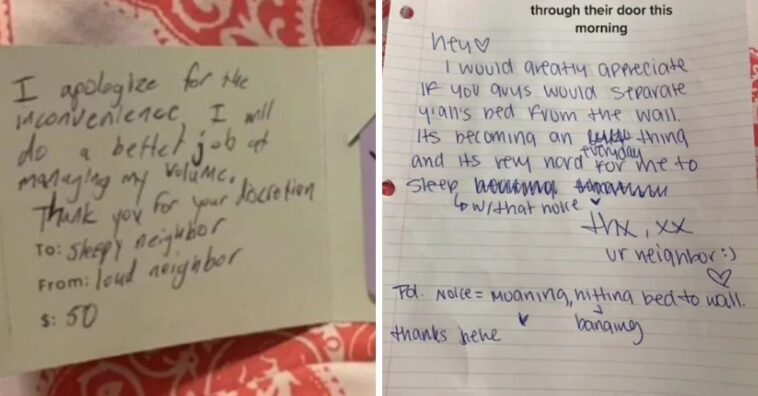 I apologize for the
inconvenience. I will
do a better job at
managing my volume.
Thank you for your discretion
To: sleepy neighbor
From: loud neighbor
$: 50
through their door this
morning
hey♡
I would greatly appreciate
IF you guys would separate
y'all's bed from the wall.
Its becoming an everyday thing
and its very hard for me to
sleep
↳ w/that noise
thx, xx
ur neighbor:)
♡
Pd. Noice = moaning, hitting bed to wall.
↓
banging
thanks hehe